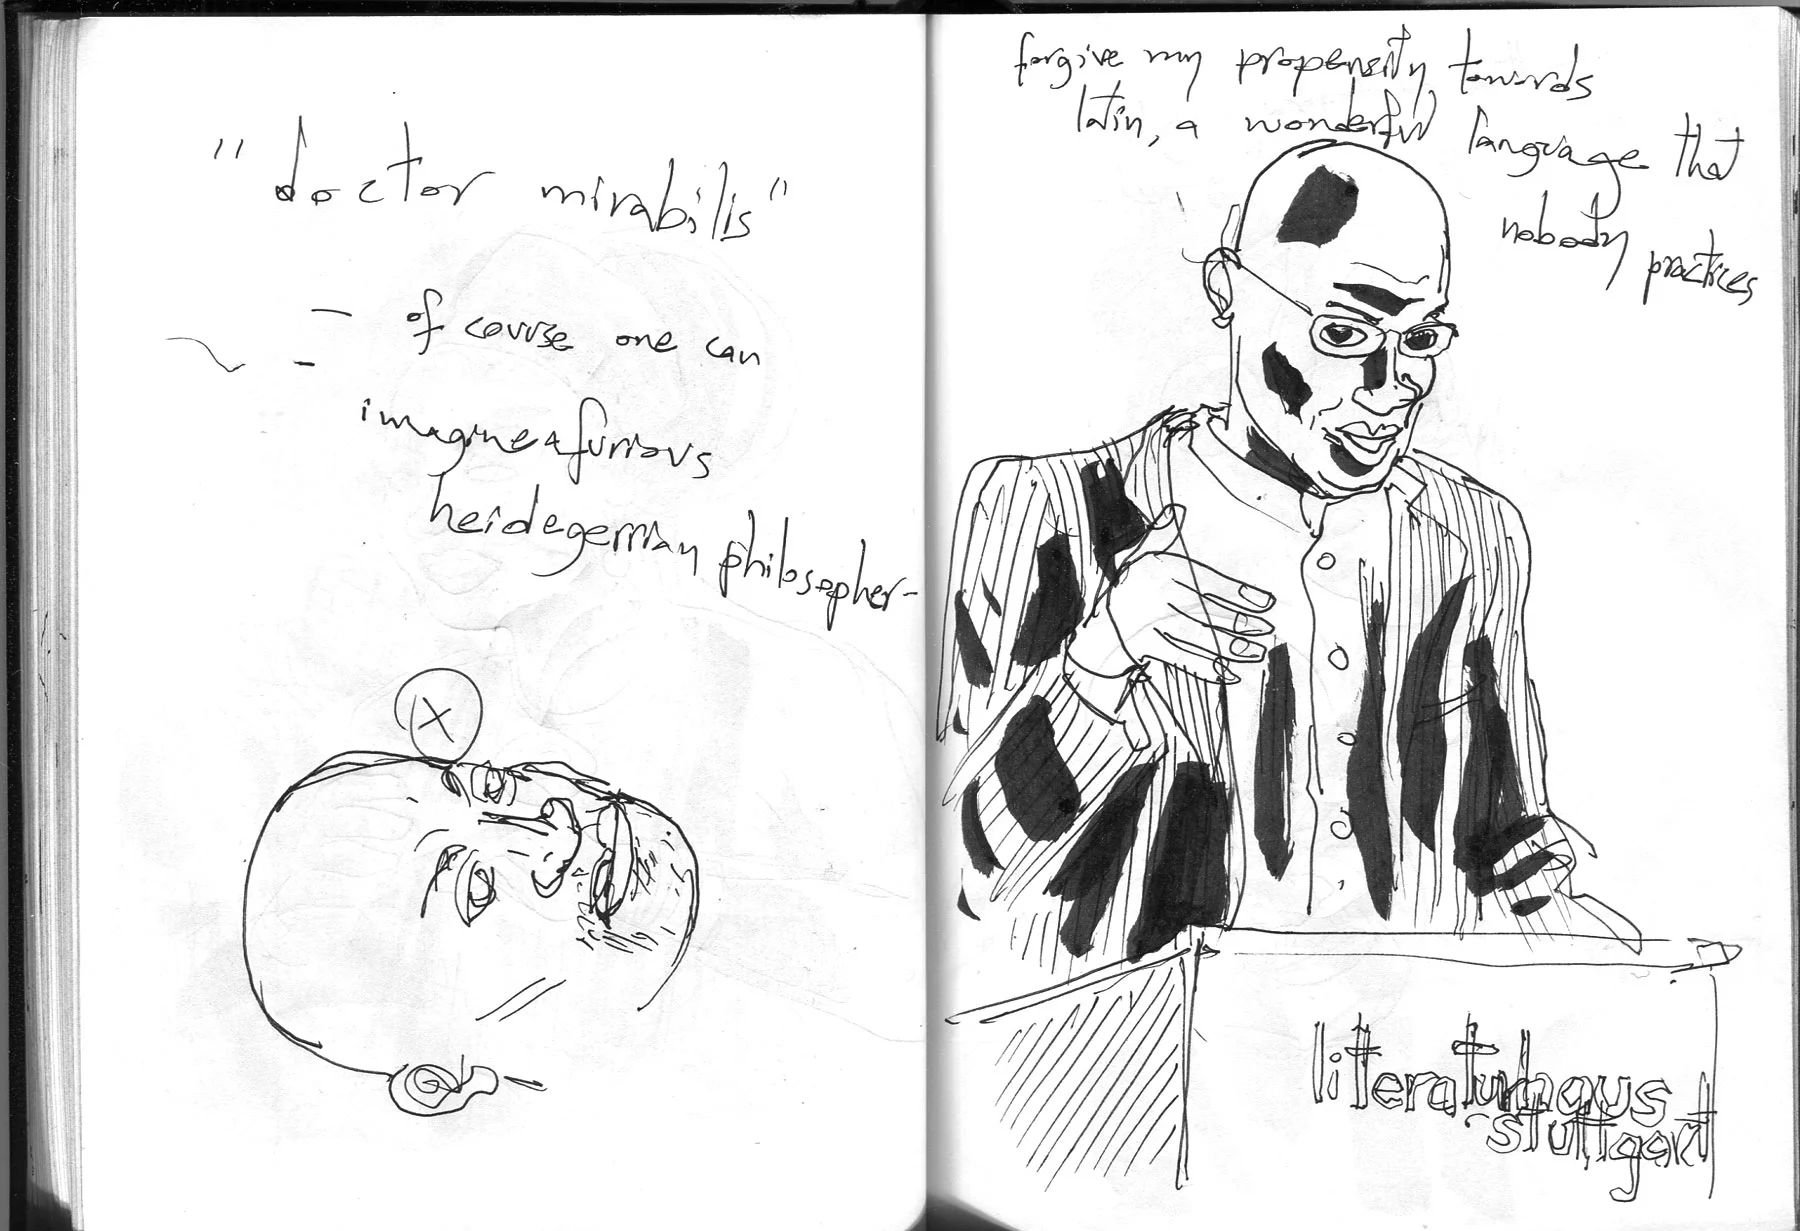 "doctor mirabilis"
- of course one can
imagine a furious
heidegerrian philosopher-
X
forgive my propensity towards
latin, a wonderful language that
nobody practices
literaturhaus
stuttgart